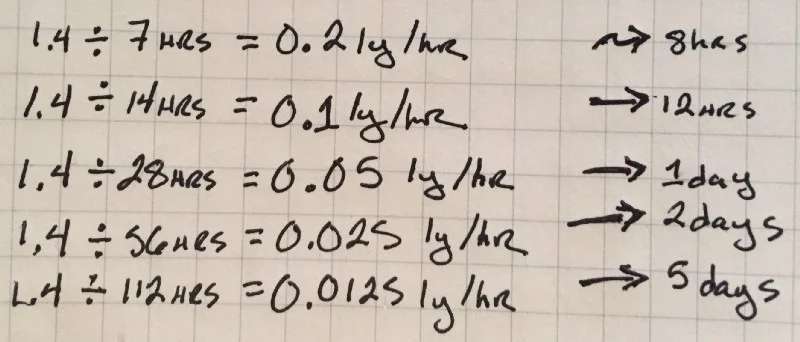 1.4 ÷ 7 HRS = 0.2 ly/hr → 8hrs
1.4 ÷ 14HRS = 0.1 ly/hr → 12HRS
1.4 ÷ 28HRS = 0.05 ly/hr → 1day
1.4 ÷ 56HRS = 0.025 ly/hr → 2days
1.4 ÷ 112HRS = 0.0125 ly/hr → 5 days